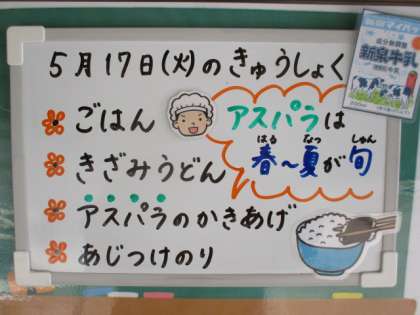 5月17日(火)のきゅうしょく
ごはん
きざみうどん
アスパラのかきあげ
あじつけのり
アスパラは
はる なつ しゅん
春~夏が旬
新泉牛乳